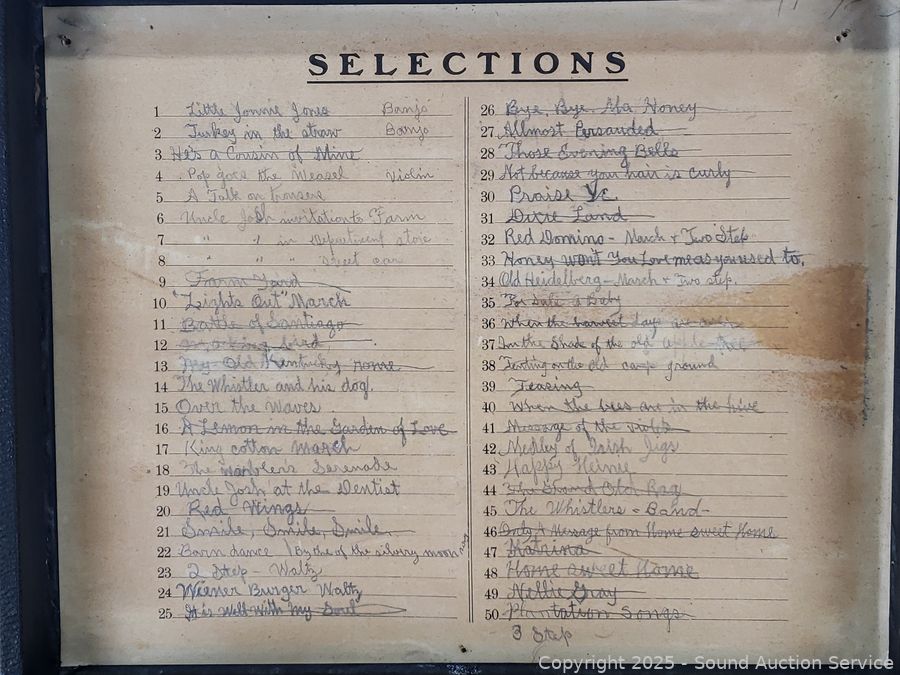 SELECTIONS
1 Little Jonnie Jones Banjo
2 Turkey in the straw Banjo
3 He's a Cousin of Mine
4 Pop goes the Weasel Violin
5 A Talk on trousers
6 Uncle Josh invitation to Farm
7 " " in Department store
8 " " " street car
9 Farm Yard
10 "Lights Out" March
11 Battle of Santiago
12 mocking bird
13 My Old Kentucky Home
14 The Whistler and his dog.
15 Over the Waves
16 A Lemon in the Garden of Love
17 King cotton march
18 The Warblers Serenade
19 Uncle Josh at the Dentist
20 Red Wings
21 Smile, Smile, Smile
22 Barn dance / By the of the silvery moon
23 2 Step - Waltz
24 Wiener Burger Waltz
25 It is Well With My Soul
26 Bye, Bye. Ma Honey
27 Allmost Persauded
28 Those Evening Bells
29 Not because your hair is curly
30 Praise Ye
31 Dixie Land
32 Red Domino - March & Two Step
33 Honey won't You Love me as you used to.
34 Old Heidelberg - March & Two step.
35 For Sale a Baby
36 When the harvest days are over
37 In the Shade of the old apple tree
38 Tenting on the old camp ground
39 Teasing
40 When the bees are in the hive
41 Message of the violet
42 Medley of Irish Jigs
43 Happy Heinie
44 The Grand Old Rag
45 The Whistlers - Band -
46 Only A Message from Home sweet Home
47 Katrina
48 Home sweet Home
49 Nellie Gray
50 Plantation Songs
3 Step
Copyright 2025 - Sound Auction Service